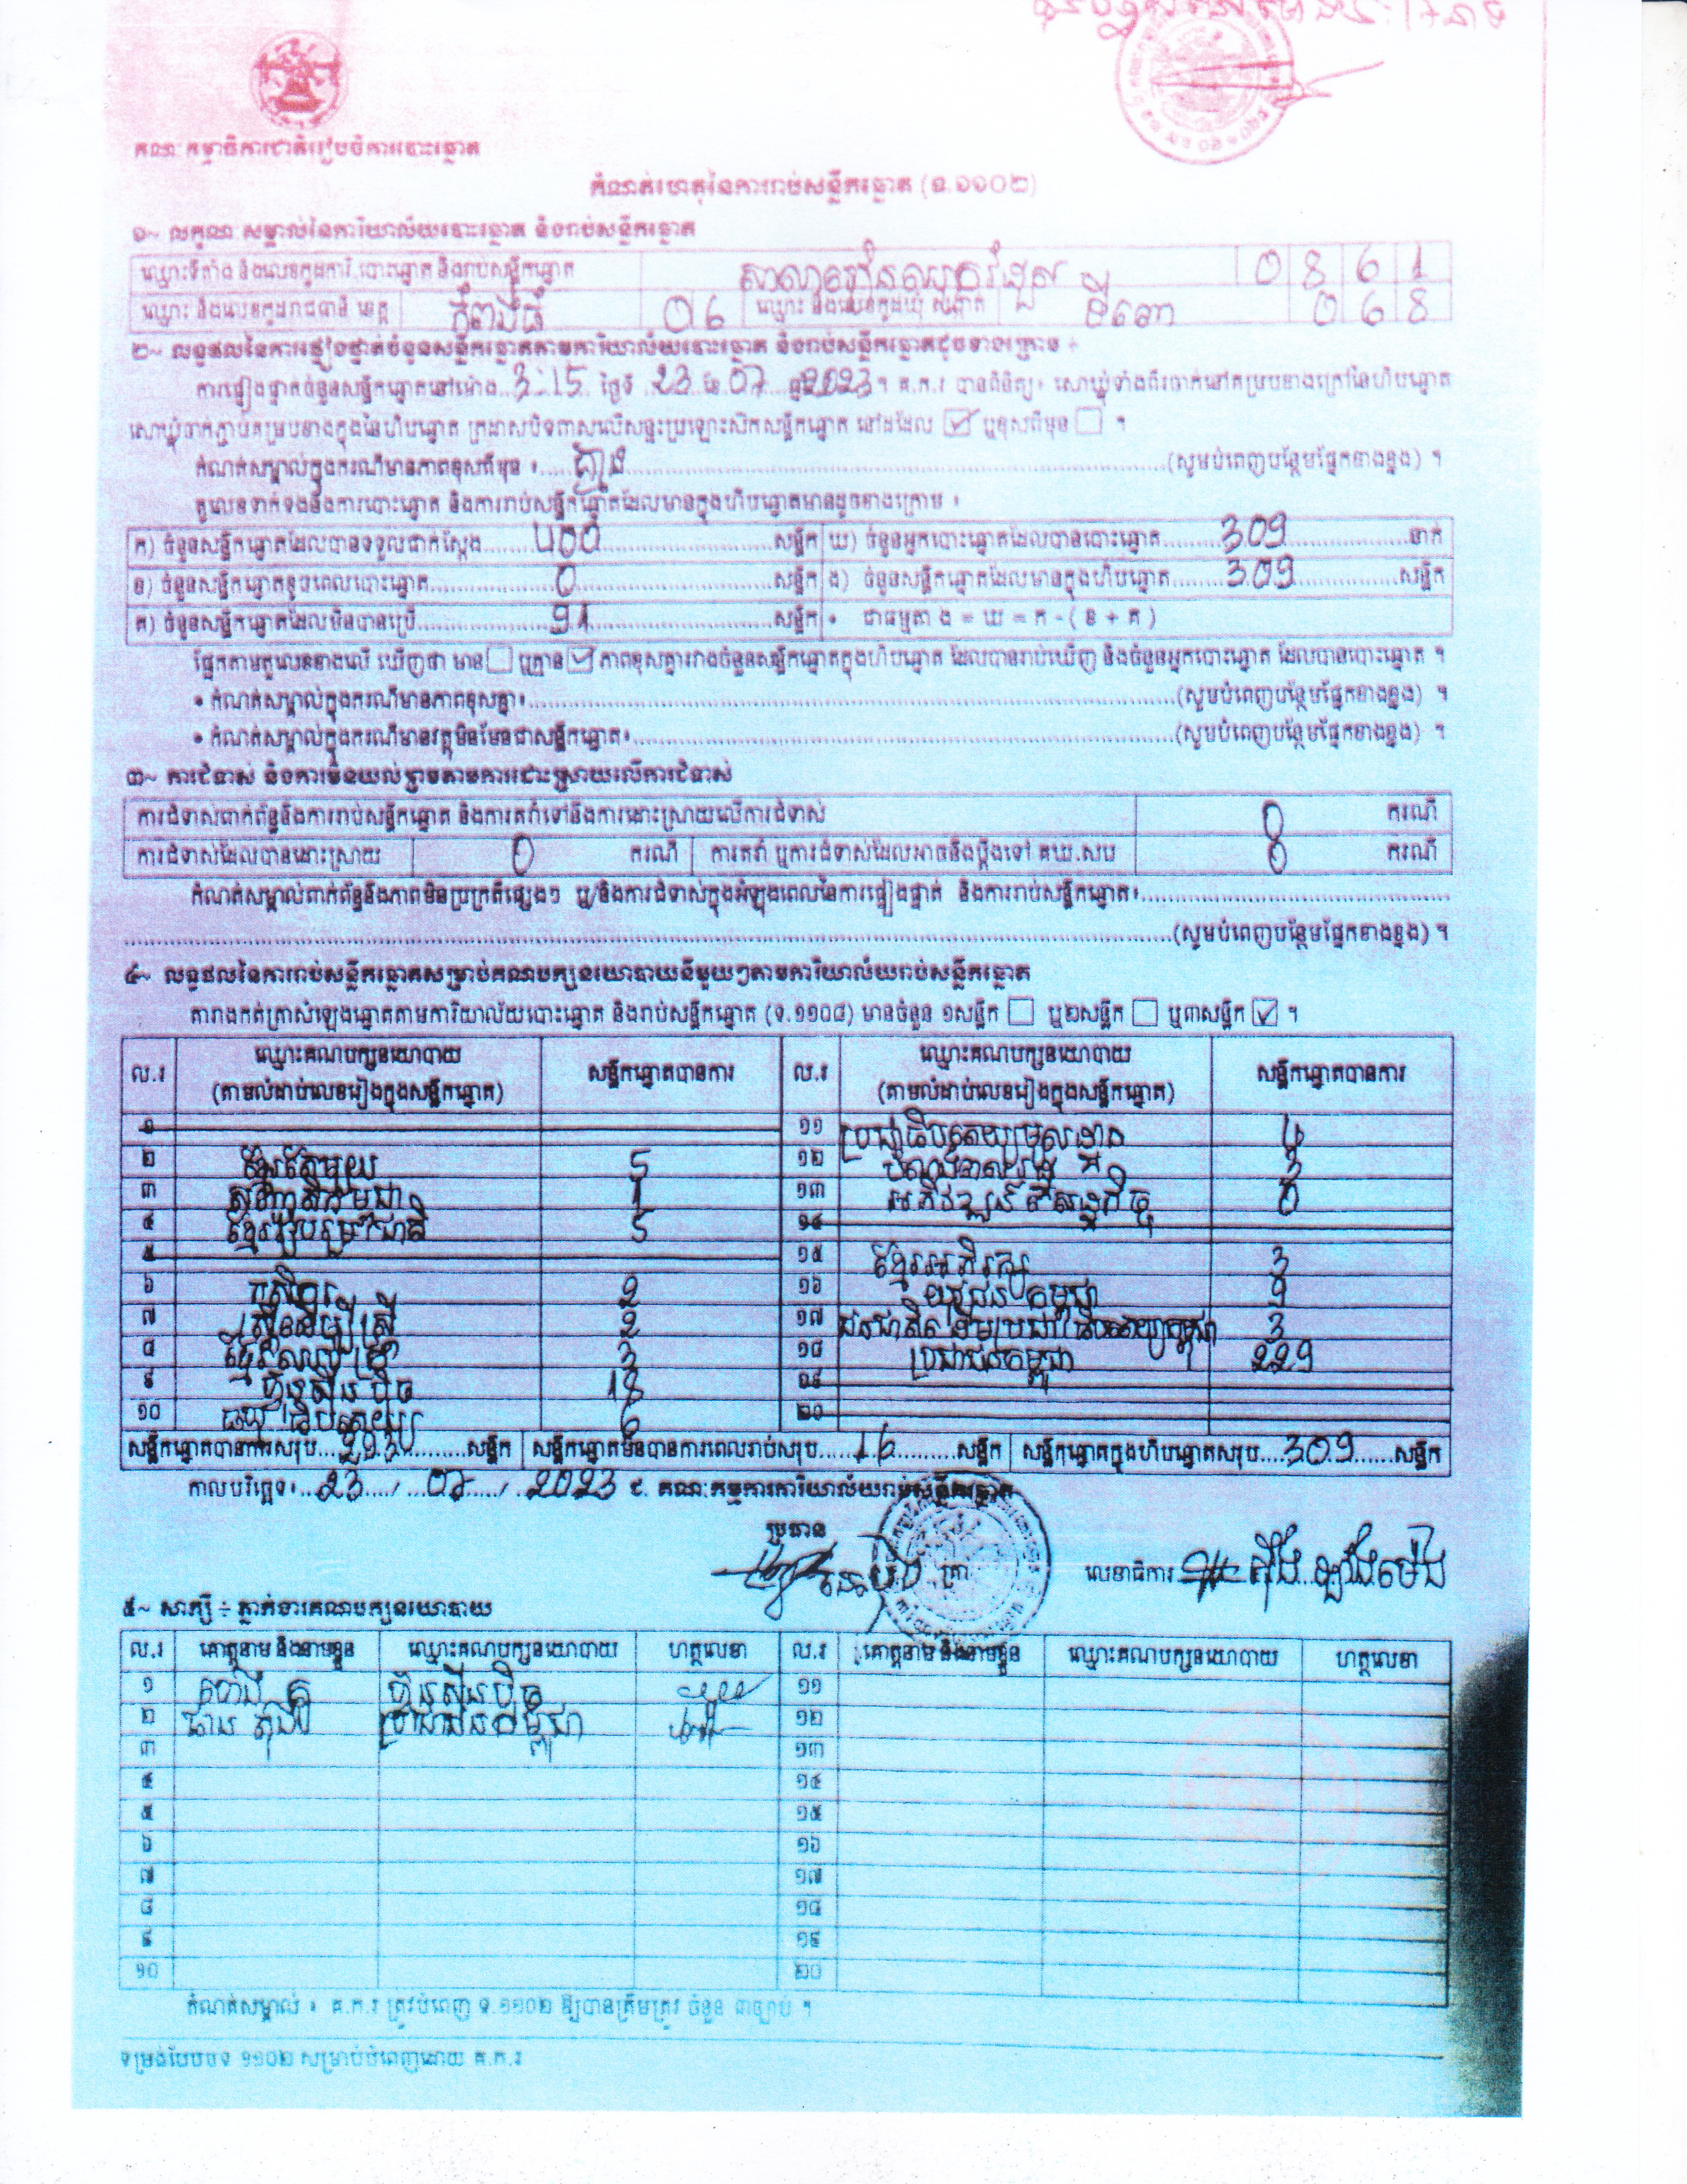 គណៈកម្មាធិការជាតិរៀបចំការបោះឆ្នោត
កំណត់ហេតុនៃការរាប់សន្លឹកឆ្នោត (ទ.១១០២)
១~ លក្ខណៈសម្គាល់នៃការិយាល័យបោះឆ្នោត និងរាប់សន្លឹកឆ្នោត
ឈ្មោះទីតាំង និងលេខកូដការិ.បោះឆ្នោត និងរាប់សន្លឹកឆ្នោត 0861
ឈ្មោះ និងលេខកូដរាជធានី ខេត្ត កំពង់ធំ 06 ឈ្មោះ និងលេខកូដឃុំ សង្កាត់ ទីពោ 068
២~ លទ្ធផលនៃការផ្ទៀងផ្ទាត់ចំនួនសន្លឹកឆ្នោតតាមការិយាល័យបោះឆ្នោត និងរាប់សន្លឹកឆ្នោតដូចខាងក្រោម ÷
ការផ្ទៀងផ្ទាត់ចំនួនសន្លឹកឆ្នោតនៅម៉ោង 3:15 ថ្ងៃទី 23 ខែ 07 ឆ្នាំ 2023។ គ.ក.រ បានពិនិត្យ៖ សោឃ្លុំទាំងពីរចាក់នៅគម្របខាងក្រៅនៃហិបឆ្នោត
សោឃ្លុំចាក់ភ្ជាប់គម្របខាងក្នុងនៃហិបឆ្នោត ក្រដាសបិទពាសលើសន្ទះប្រឡោះសិកសន្លឹកឆ្នោត នៅដដែល ☑ ឬខុសពីមុន ☐ ។
កំណត់សម្គាល់ក្នុងករណីមានភាពខុសពីមុន ៖ គ្មាន (សូមបំពេញបន្ថែមផ្នែកខាងខ្នង) ។
តួលេខទាក់ទងនឹងការបោះឆ្នោត និងការរាប់សន្លឹកឆ្នោតដែលមានក្នុងហិបឆ្នោតមានដូចខាងក្រោម ៖
ក) ចំនួនសន្លឹកឆ្នោតដែលបានទទួលជាក់ស្តែង 400 សន្លឹក ឃ) ចំនួនអ្នកបោះឆ្នោតដែលបានបោះឆ្នោត 309 នាក់
ខ) ចំនួនសន្លឹកឆ្នោតខូចពេលបោះឆ្នោត 0 សន្លឹក ង) ចំនួនសន្លឹកឆ្នោតដែលមានក្នុងហិបឆ្នោត 309 សន្លឹក
គ) ចំនួនសន្លឹកឆ្នោតដែលមិនបានប្រើ 91 សន្លឹក • ជាធម្មតា ង = ឃ = ក - ( ខ + គ )
ផ្អែកតាមតួលេខខាងលើ ឃើញថា មាន ☐ ឬគ្មាន ☑ ភាពខុសគ្នារវាងចំនួនសន្លឹកឆ្នោតក្នុងហិបឆ្នោត ដែលបានរាប់ឃើញ និងចំនួនអ្នកបោះឆ្នោត ដែលបានបោះឆ្នោត ។
• កំណត់សម្គាល់ក្នុងករណីមានភាពខុសគ្នា៖ (សូមបំពេញបន្ថែមផ្នែកខាងខ្នង) ។
• កំណត់សម្គាល់ក្នុងករណីមានវត្ថុមិនមែនជាសន្លឹកឆ្នោត៖ (សូមបំពេញបន្ថែមផ្នែកខាងខ្នង) ។
៣~ ការជំទាស់ និងការមិនយល់ព្រមតាមការដោះស្រាយលើការជំទាស់
ការជំទាស់ពាក់ព័ន្ធនឹងការរាប់សន្លឹកឆ្នោត និងការតវ៉ាទៅនឹងការដោះស្រាយលើការជំទាស់ 0 ករណី
ការជំទាស់ដែលបានដោះស្រាយ 0 ករណី ការតវ៉ា ឬការជំទាស់ដែលអាចនឹងប្តឹងទៅ គឃ.សប 0 ករណី
កំណត់សម្គាល់ពាក់ព័ន្ធនឹងភាពមិនប្រក្រតីផ្សេងៗ ឬ/និងការជំទាស់ក្នុងអំឡុងពេលនៃការផ្ទៀងផ្ទាត់ និងការរាប់សន្លឹកឆ្នោត៖
(សូមបំពេញបន្ថែមផ្នែកខាងខ្នង) ។
៤~ លទ្ធផលនៃការរាប់សន្លឹកឆ្នោតសម្រាប់គណបក្សនយោបាយនីមួយៗតាមការិយាល័យរាប់សន្លឹកឆ្នោត
តារាងកត់ត្រាសំឡេងឆ្នោតតាមការិយាល័យបោះឆ្នោត និងរាប់សន្លឹកឆ្នោត (ទ.១១០៨) មានចំនួន ១សន្លឹក ☐ ឬ២សន្លឹក ☐ ឬ៣សន្លឹក ☑ ។
ល.រ ឈ្មោះគណបក្សនយោបាយ (តាមលំដាប់លេខរៀងក្នុងសន្លឹកឆ្នោត) សន្លឹកឆ្នោតបានការ ល.រ ឈ្មោះគណបក្សនយោបាយ (តាមលំដាប់លេខរៀងក្នុងសន្លឹកឆ្នោត) សន្លឹកឆ្នោតបានការ
១ ១១ ប្រជាធិបតេយ្យមូលដ្ឋាន 4
២ ខ្មែរតែមួយ 5 ១២ 3
៣ 1 ១៣ អភិវឌ្ឍន៍សេដ្ឋកិច្ច 0
៤ ខ្មែររួបរួមជាតិ 5 ១៤
៥ ១៥ ខ្មែរអភិរក្ស 3
៦ កសិករ 2 ១៦ យុវជនកម្ពុជា 9
៧ ស្ត្រីដើម្បីស្ត្រី 2 ១៧ ជនជាតិដើមប្រជាធិបតេយ្យកម្ពុជា 3
៨ 3 ១៨ ប្រជាជនកម្ពុជា 229
៩ ហ៊្វុនស៊ិនប៉ិច 18 ១៩
១០ ឃ្មុំធិបតេយ្យ 6 ២០
សន្លឹកឆ្នោតបានការសរុប 293 សន្លឹក សន្លឹកឆ្នោតមិនបានការពេលរាប់សរុប 16 សន្លឹក សន្លឹកឆ្នោតក្នុងហិបឆ្នោតសរុប 309 សន្លឹក
កាលបរិច្ឆេទ៖ 23 / 07 / 2023 ៩. គណៈកម្មការការិយាល័យរាប់សន្លឹកឆ្នោត
ប្រធាន
លេខាធិការ
៥~ សាក្សី ÷ ភ្នាក់ងារគណបក្សនយោបាយ
ល.រ គោត្តនាម និងនាមខ្លួន ឈ្មោះគណបក្សនយោបាយ ហត្ថលេខា ល.រ គោត្តនាម និងនាមខ្លួន ឈ្មោះគណបក្សនយោបាយ ហត្ថលេខា
១ ហ៊្វុនស៊ិនប៉ិច ១១
២ ប្រជាជនកម្ពុជា ១២
៣ ១៣
៤ ១៤
៥ ១៥
៦ ១៦
៧ ១៧
៨ ១៨
៩ ១៩
១០ ២០
កំណត់សម្គាល់ ៖ គ.ក.រ ត្រូវបំពេញ ទ.១១០២ ឱ្យបានត្រឹមត្រូវ ចំនួន ៣ច្បាប់ ។
ទម្រង់បែបបទ ១១០២ សម្រាប់បំពេញដោយ គ.ក.រ